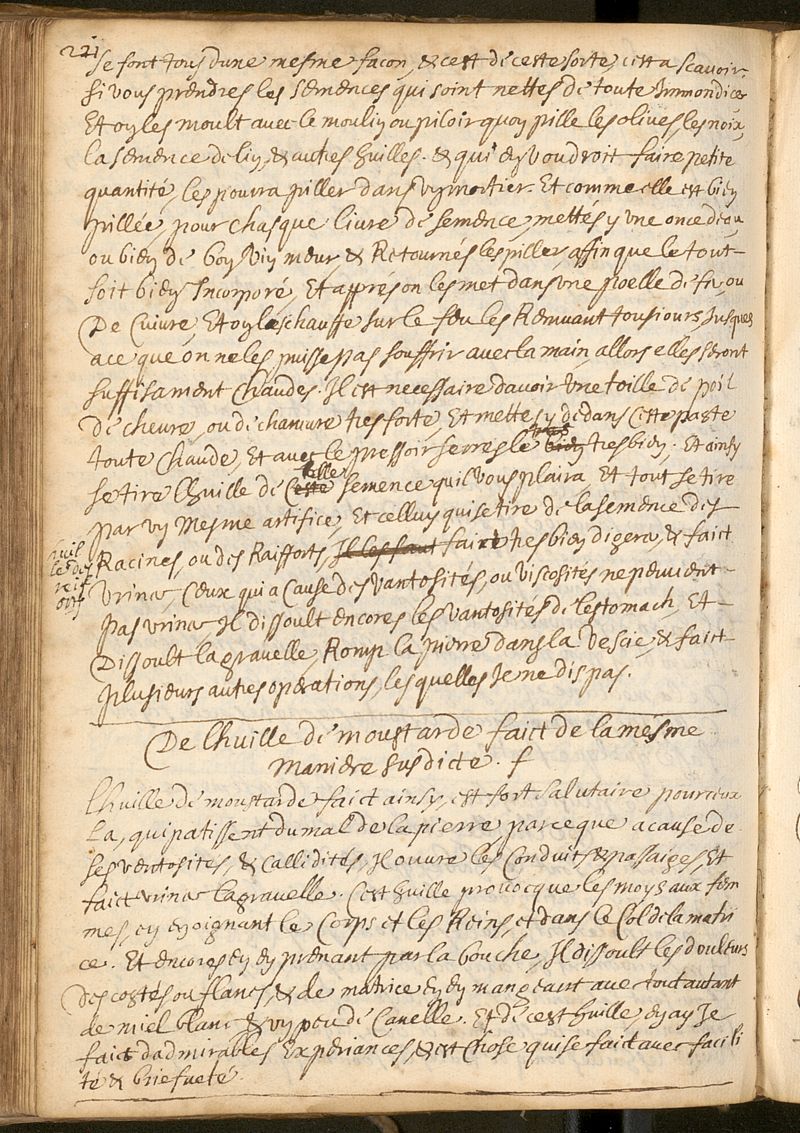 221
se font tous dune mesme facon, & cest de ceste sorte, cest a scavoir
si vous prendres les semences qui soint nettes de toute Immondices
Et oy les moult avec le moulin ou piloir quoy pille les olives, les noix,
la semence de lin, & autres huilles. & qui en voudroit faire petite
quantité, les pourra piller dans un mortier. Et comme elle est bien
pillée, pour chasque livre de semence, mettés y une once deau,
ou bien de bon vin meur, & Retournés les piller, affin que le tout
soit bien Incorporé, Et apprés on les met dans une poelle de fer, ou
De Cuivre, Et oy leschauffe sur le feu les Remuant tousiours, Jusques
a ce que on ne les puisse pas souffrir avec la main, allors elles seront
suffisament Chaudes. Il est necessaire davoir une toille de poil
de chevre, ou de chanvre tresforte, Et mettes y dedans ceste paste
toute Chaude, Et avec le pressoir serres le bien tresbien. Et ainsy
telle
se tire lhuille de Ceste semence quil vous plaira, Et tout se tire
par un Mesme artifice, Et celluy qui se tire de la semence des
huil
le des
reif
orts
Racines, ou des Raifforts, Il les faut faict tresbien digerer, & faict
Uriner, Ceux qui a Cause des vantosités, ou viscosités ne peuvient
pas uriner, Il dissoult encores les vantosités de lestomach, Et
Dissoult la gravelle, Romp la pierre dans la Vescie, & faict
plusieurs autres operations, lesquelles Je ne dis pas.
De lhuille de moustarde faict de la mesme
Maniere susdicte. f
Lhuille de moustarde faict ainsy, est fort salutaire pour ceux
La, qui patissent du mal de la pierre, parce que a cause de
ses ventosites, & callidités, Il ouvre les Conduits & passaiges, Et
faict uriner la gravelle. Cest huille provocque les moys aux fem
mes, en engoignant le Corps et les Reins, et dans le Col de la matri
ce. Et encores en en prenant par la bouche, Il dissoult les douleurs
Des costés ou flancs, & de matrice en en mangeant avec tout autant
de miel blanc & un peu de Canelle. Et de cest huille en ay Je
faict dadmirables Experiances, & est Chose qui se faict avec facili
té & briefveté